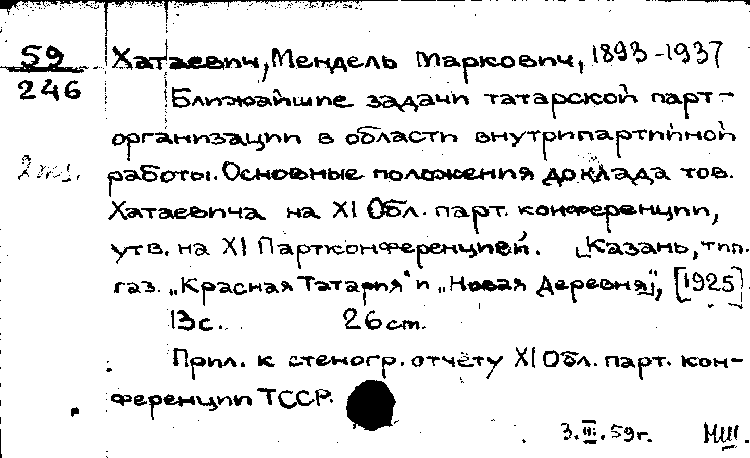 59
246
Хатаевич, Мендель Маркович, 1893-1937
Ближайшие задачи татарской парт-
организации в области внутрипартийной
2 экз. работы. Основные положения доклада тов.
Хатаевича на XI Обл. парт. конференции,
утв. на XI Партконференцией. [Казань, тип.
газ. „Красная Татария" и „Новая Деревня"], [1925].
13с. 26 cm.
Прил. к стеногр. отчёту XI Обл. парт. кон-
ференции ТССР.
3.III.59г. МШ.